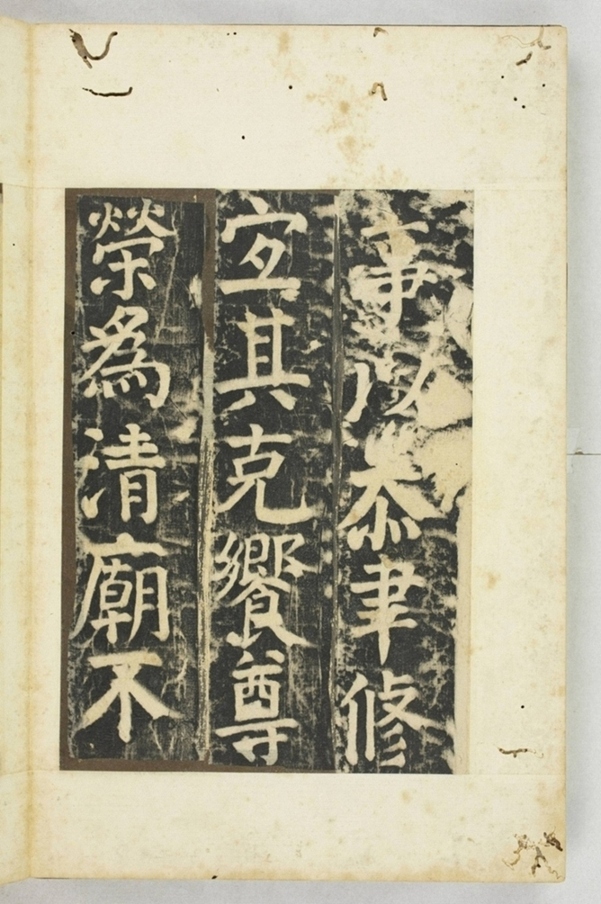 事以恭聿修
宜其克饗尊
榮爲清廟不